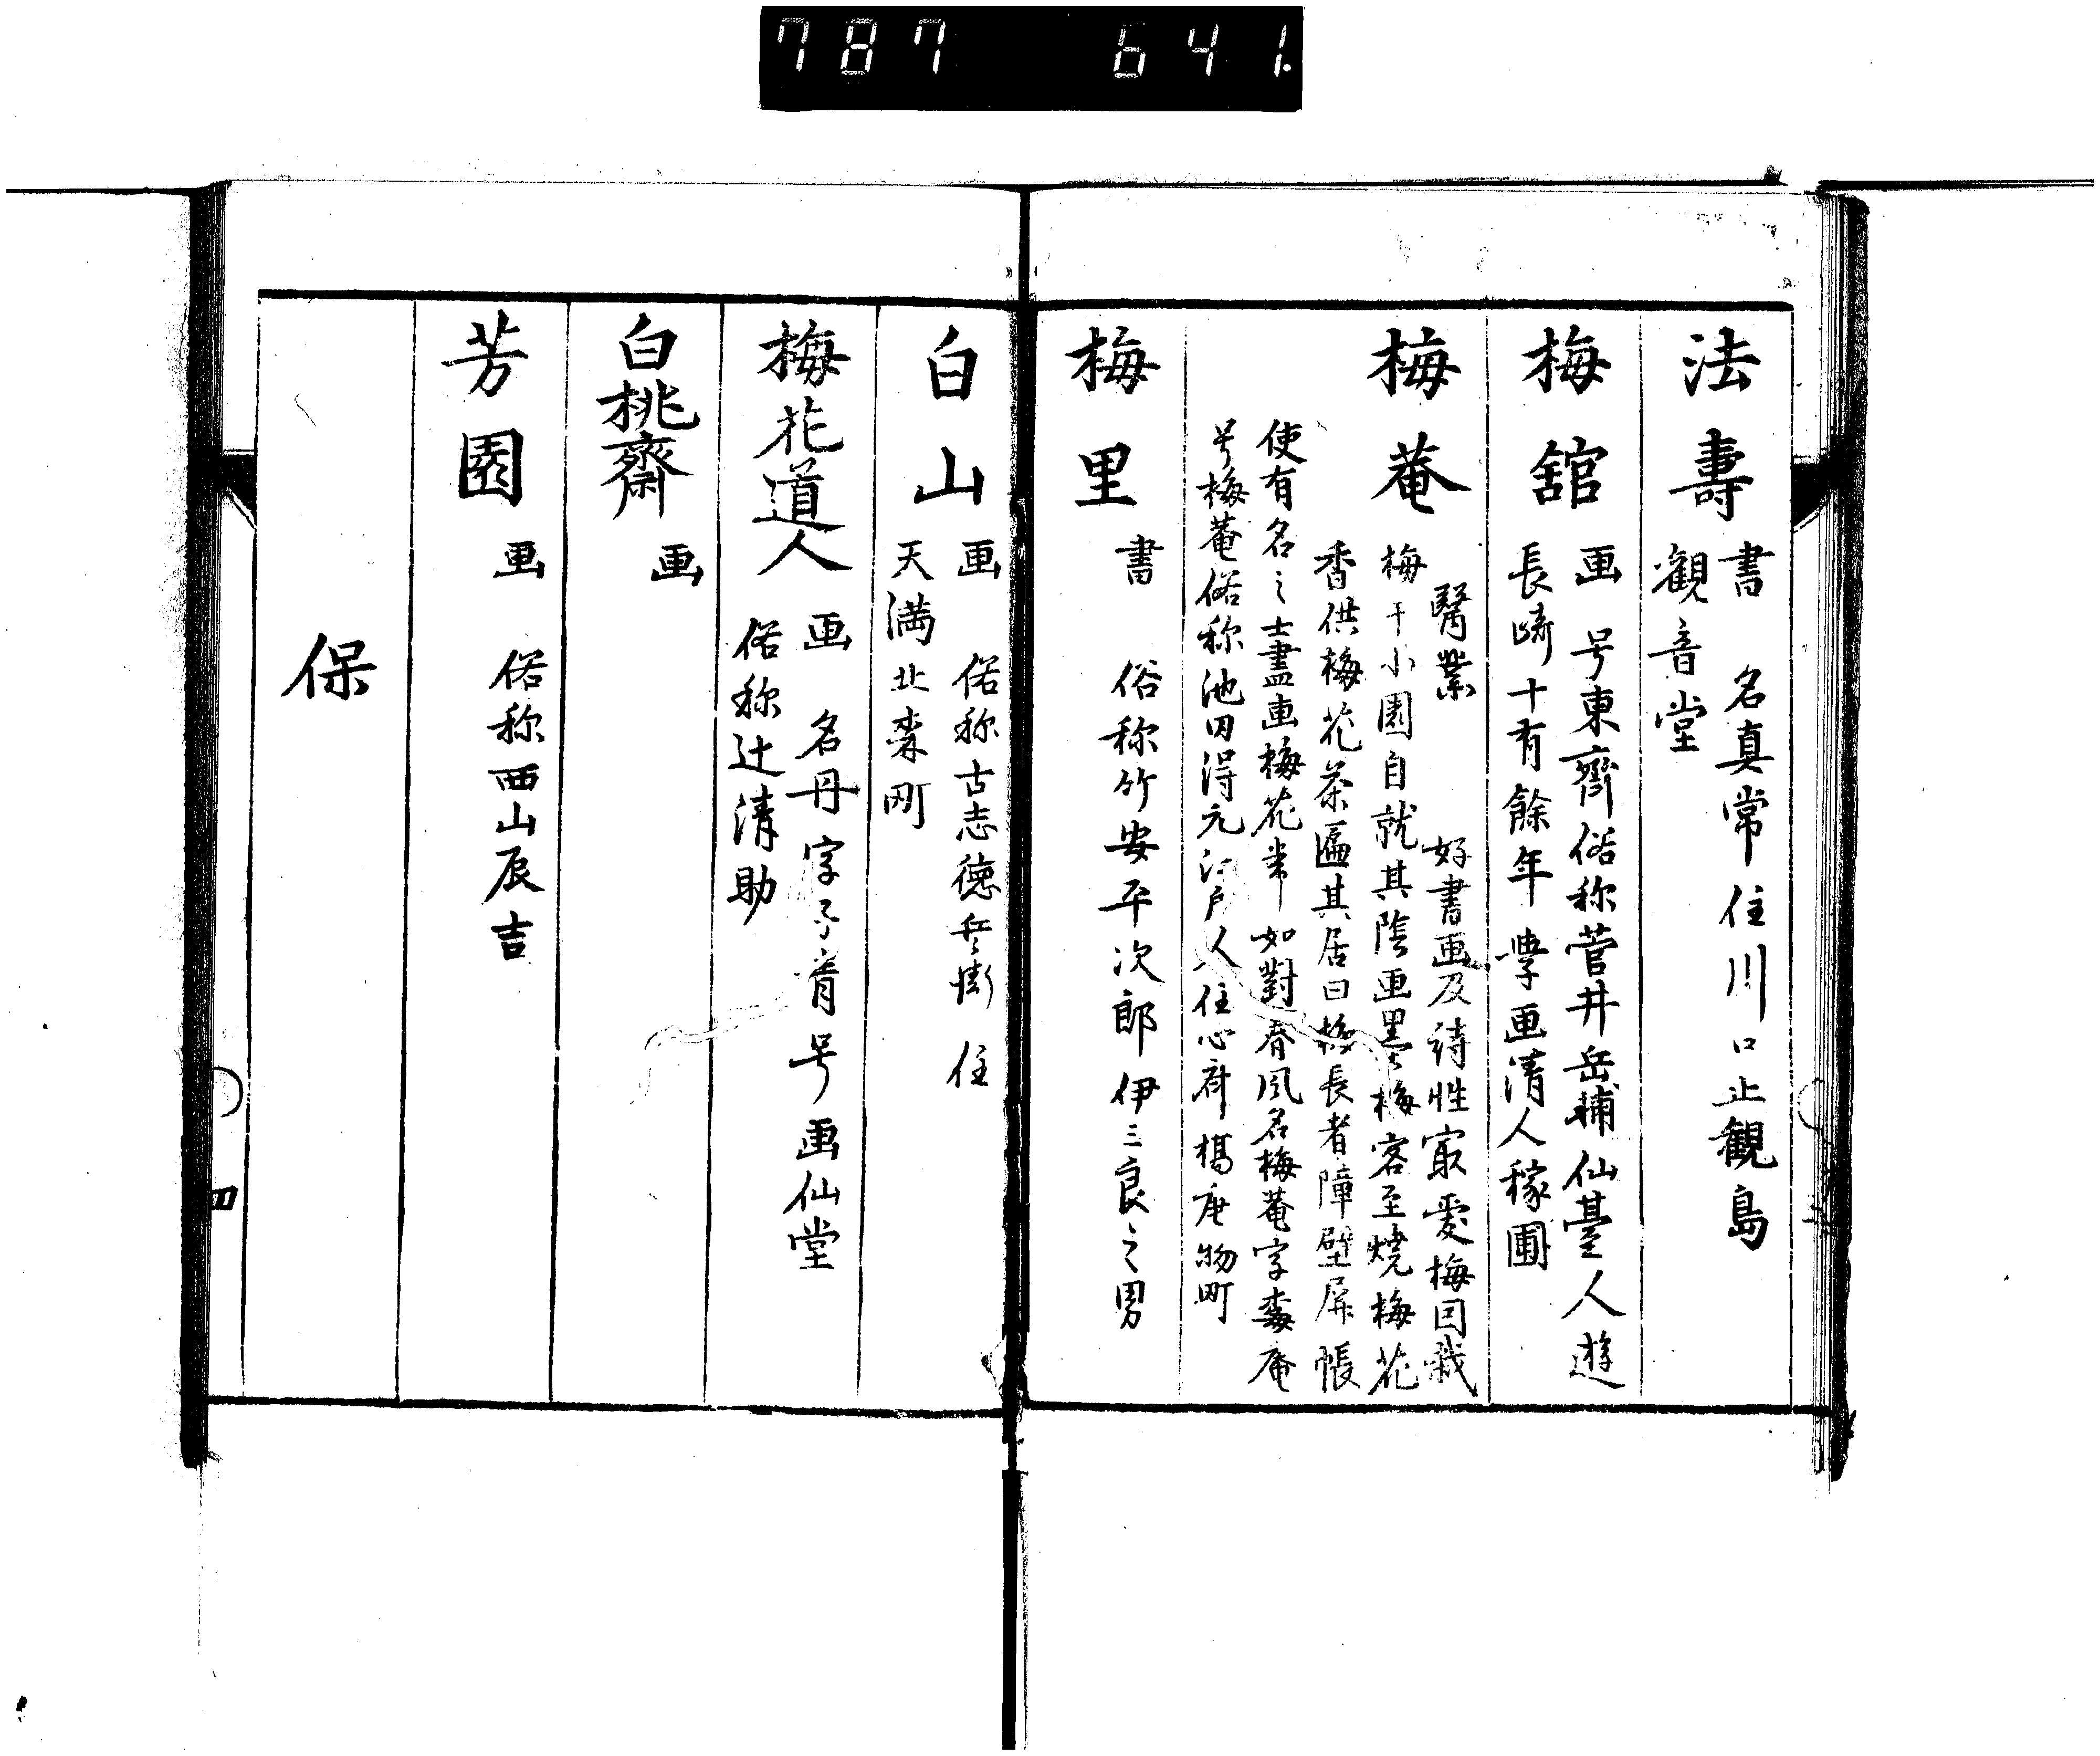 787 641.
法壽
書 名真常住川口止観島
観音堂
梅舘
画 号東齊俗称菅井岳輔仙臺人遊
長崎十有餘年學画清人稼圃
梅菴
醫業 好書画及詩性寂愛梅因栽
梅于小園自就其陰画墨梅客至焼梅花
香供梅花茶匾其居曰梅長者障壁屏帳
使有名之士盡画梅花来如對春風名梅菴字毒庵
号梅菴俗称池田淂元江戸人住心斎橋唐物町
梅里
書 俗称竹安平次郎伊三良之男
白山
画 俗称古志徳兵衛 住
天満北森町
梅花道人
画 名丹字子青号画仙堂
俗称辻清助
白桃齋
画
芳園
画 俗称西山辰吉
保
四